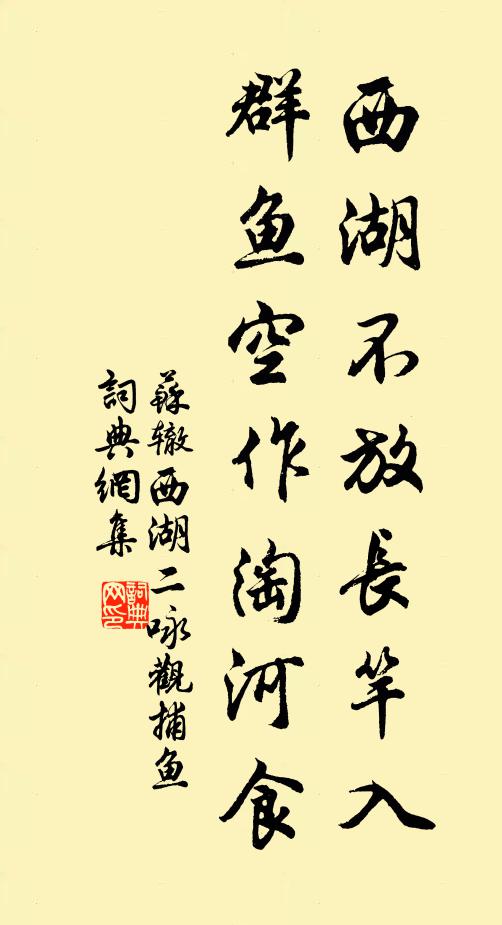 西湖不放長竿入
群鱼空作淘河食
蘇辙西湖二咏觀捕鱼
詞典網集
詞典
网印